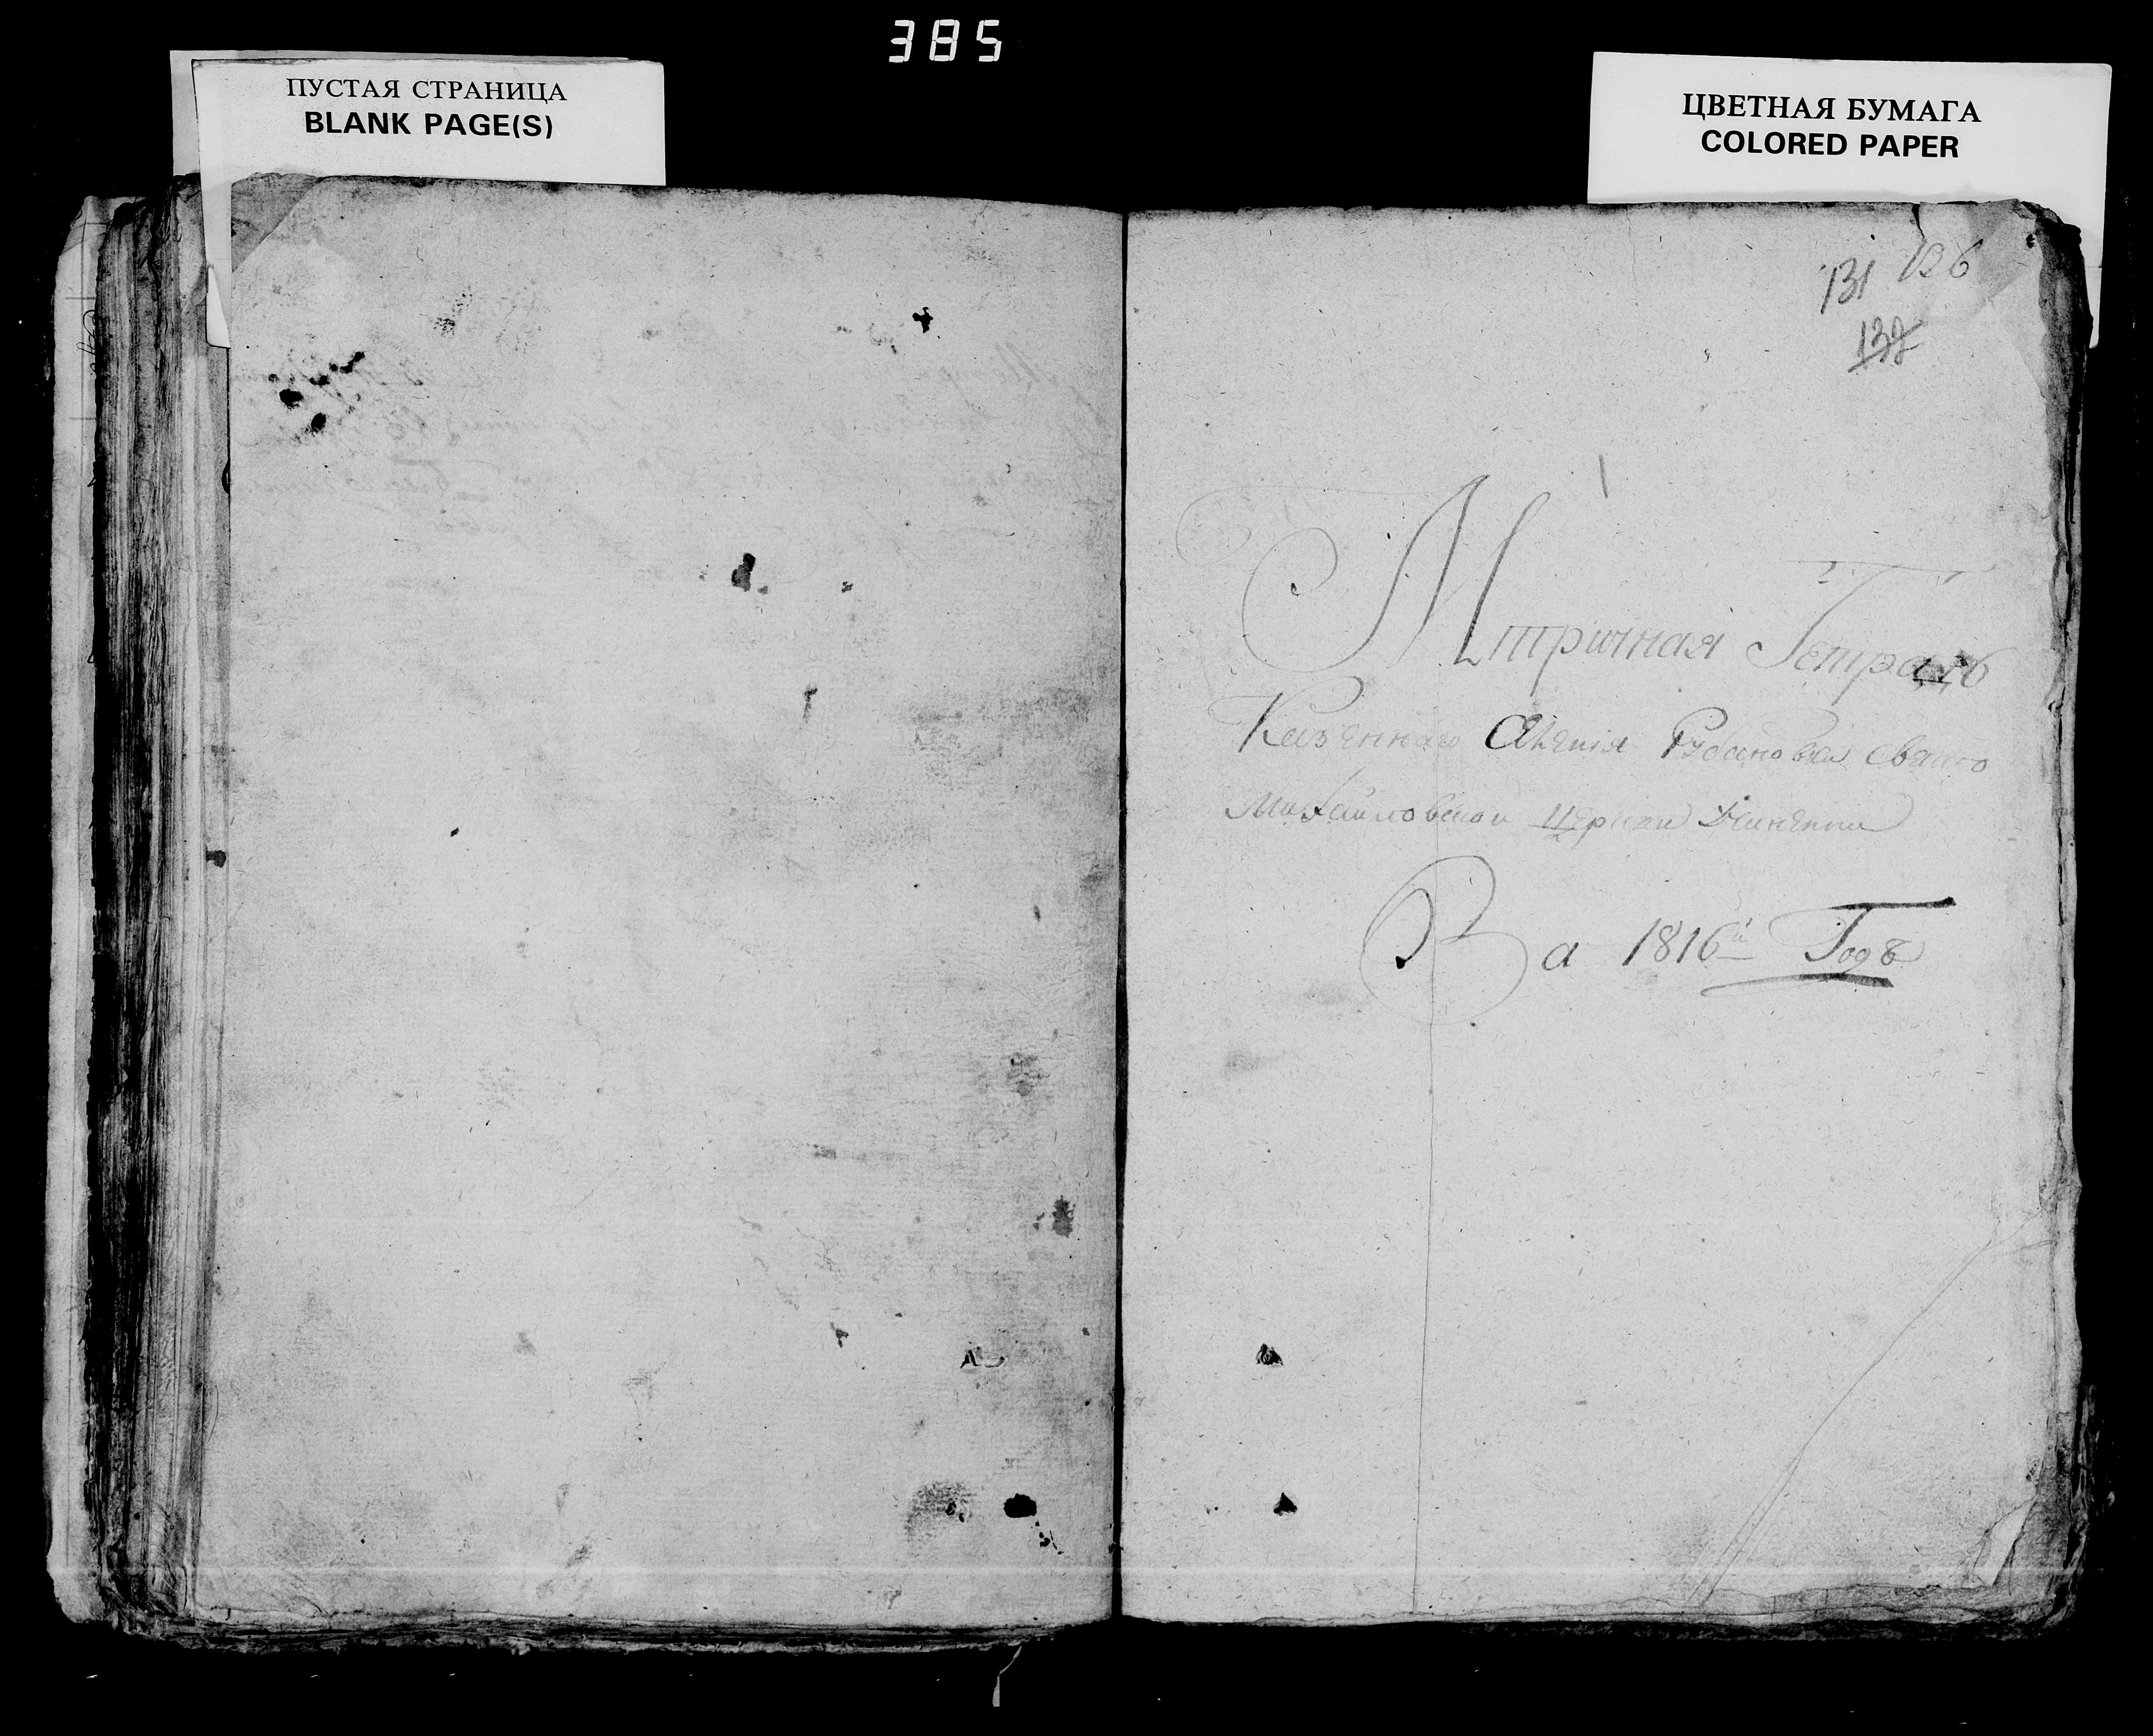 385
ПУСТАЯ СТРАНИЦА
BLANK PAGE(S)
ЦВЕТНАЯ БУМАГА
COLORED PAPER
131 126
Мтричная Тетрадь
Казеннаго Селенія Рубановки Свято
Михайловской Церкви
За 1816й Годъ